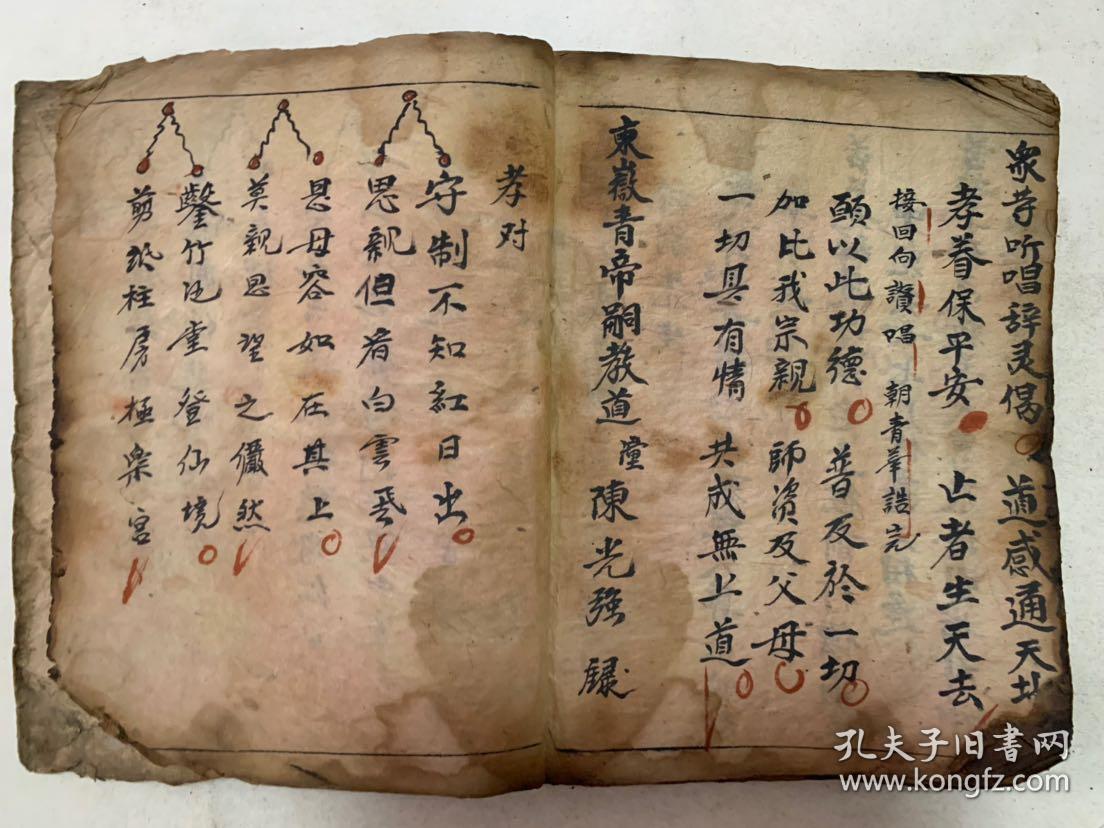 衆等听唱辞灵偈 道感通天地
孝眷保平安 亡者生天去
接回向讚唱 朝青華誥完
願以此功德 普及於一切
加比我宗親 師资及父母
一切具有情 共成無上道
東嶽青帝嗣教道 陳光强 録
孝对
守制不知紅日出
思親但看白雲飛
思母容如在其上
莫親思望之儼然
鑿竹 重登仙境
剪紙柱房極楽宮
孔夫子旧書网
www.kongfz.com